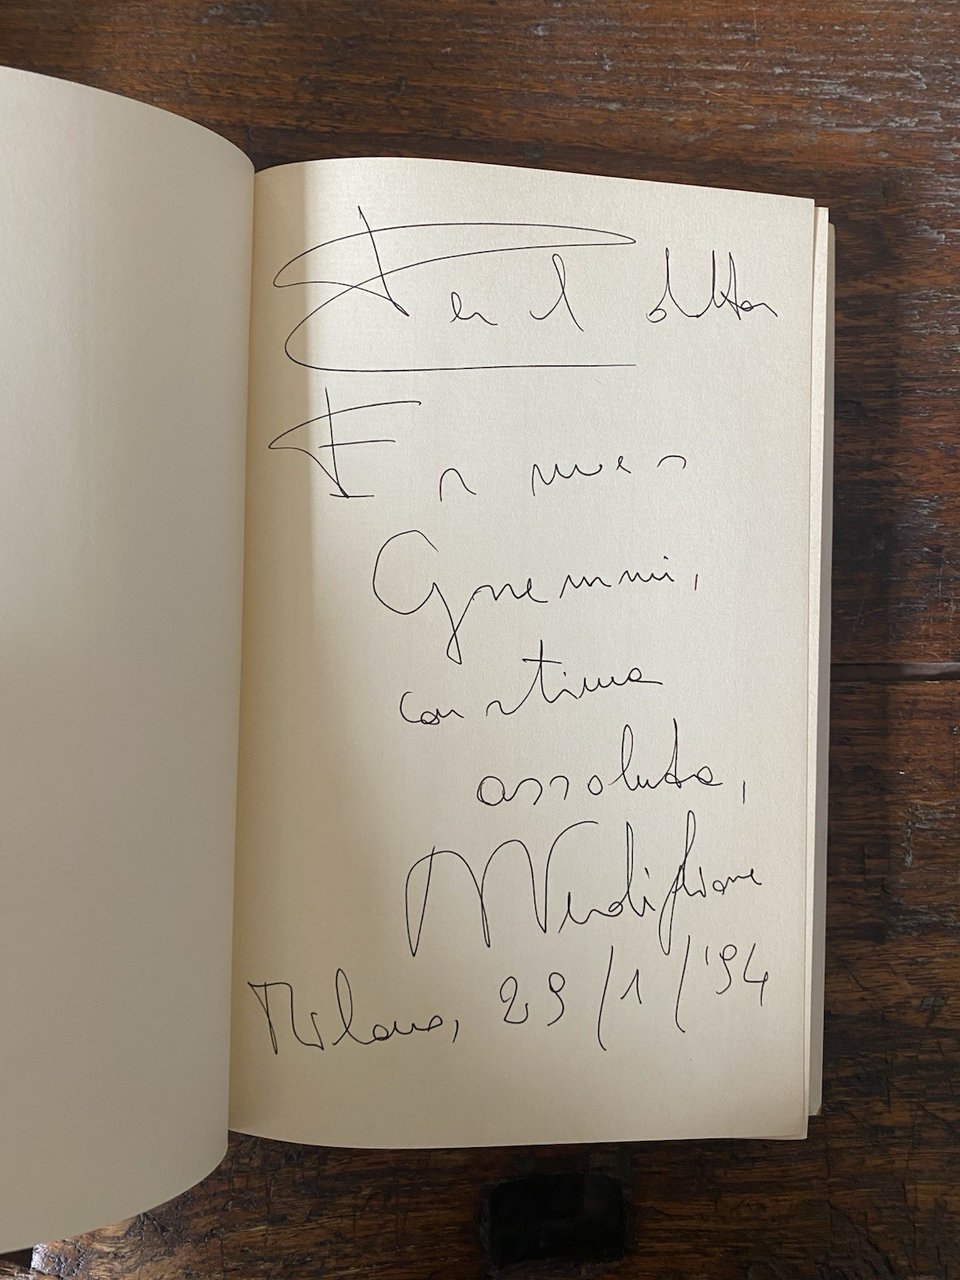 Per il dottor
Ermes
Gremmi,
con stima
assoluta,
AVerdiglione
Milano, 29/1/'94